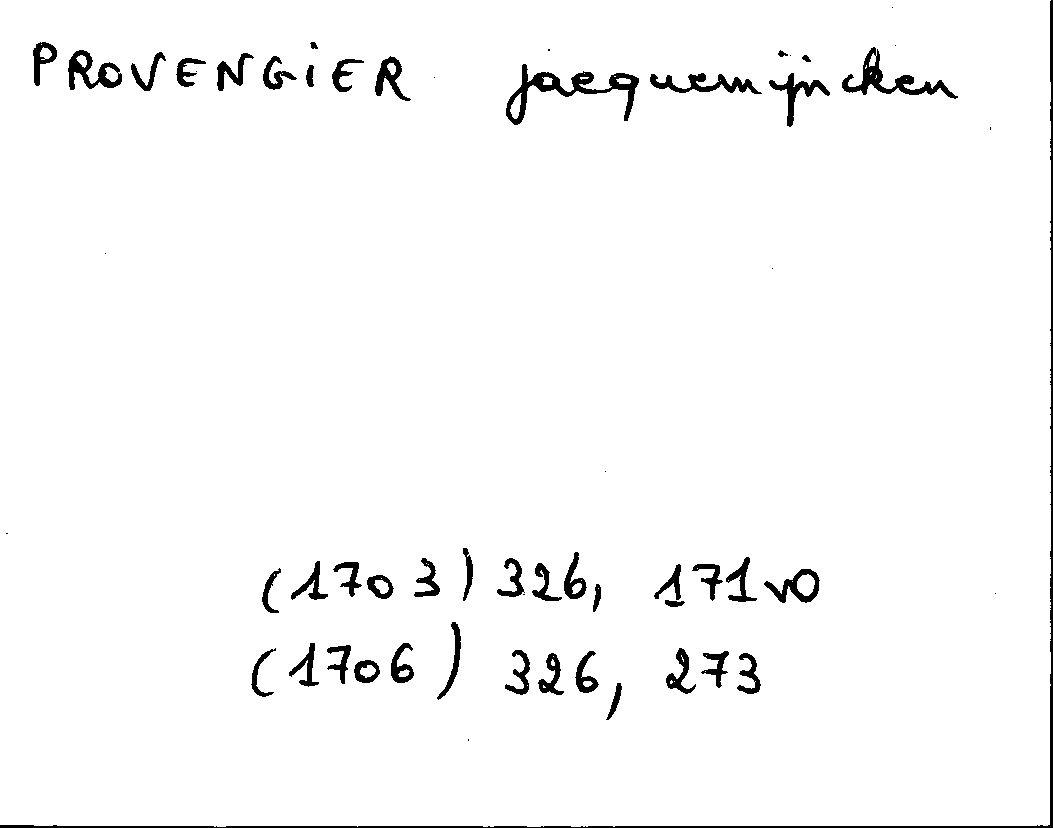 PROVENGiER jaequemijncken
(1703) 326, 171vo
(1706) 326, 273